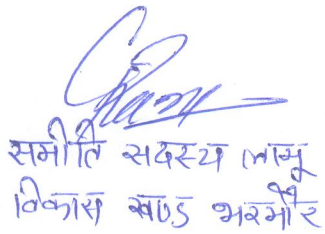 समीति सदस्य लामू
विकास खण्ड भरमौर